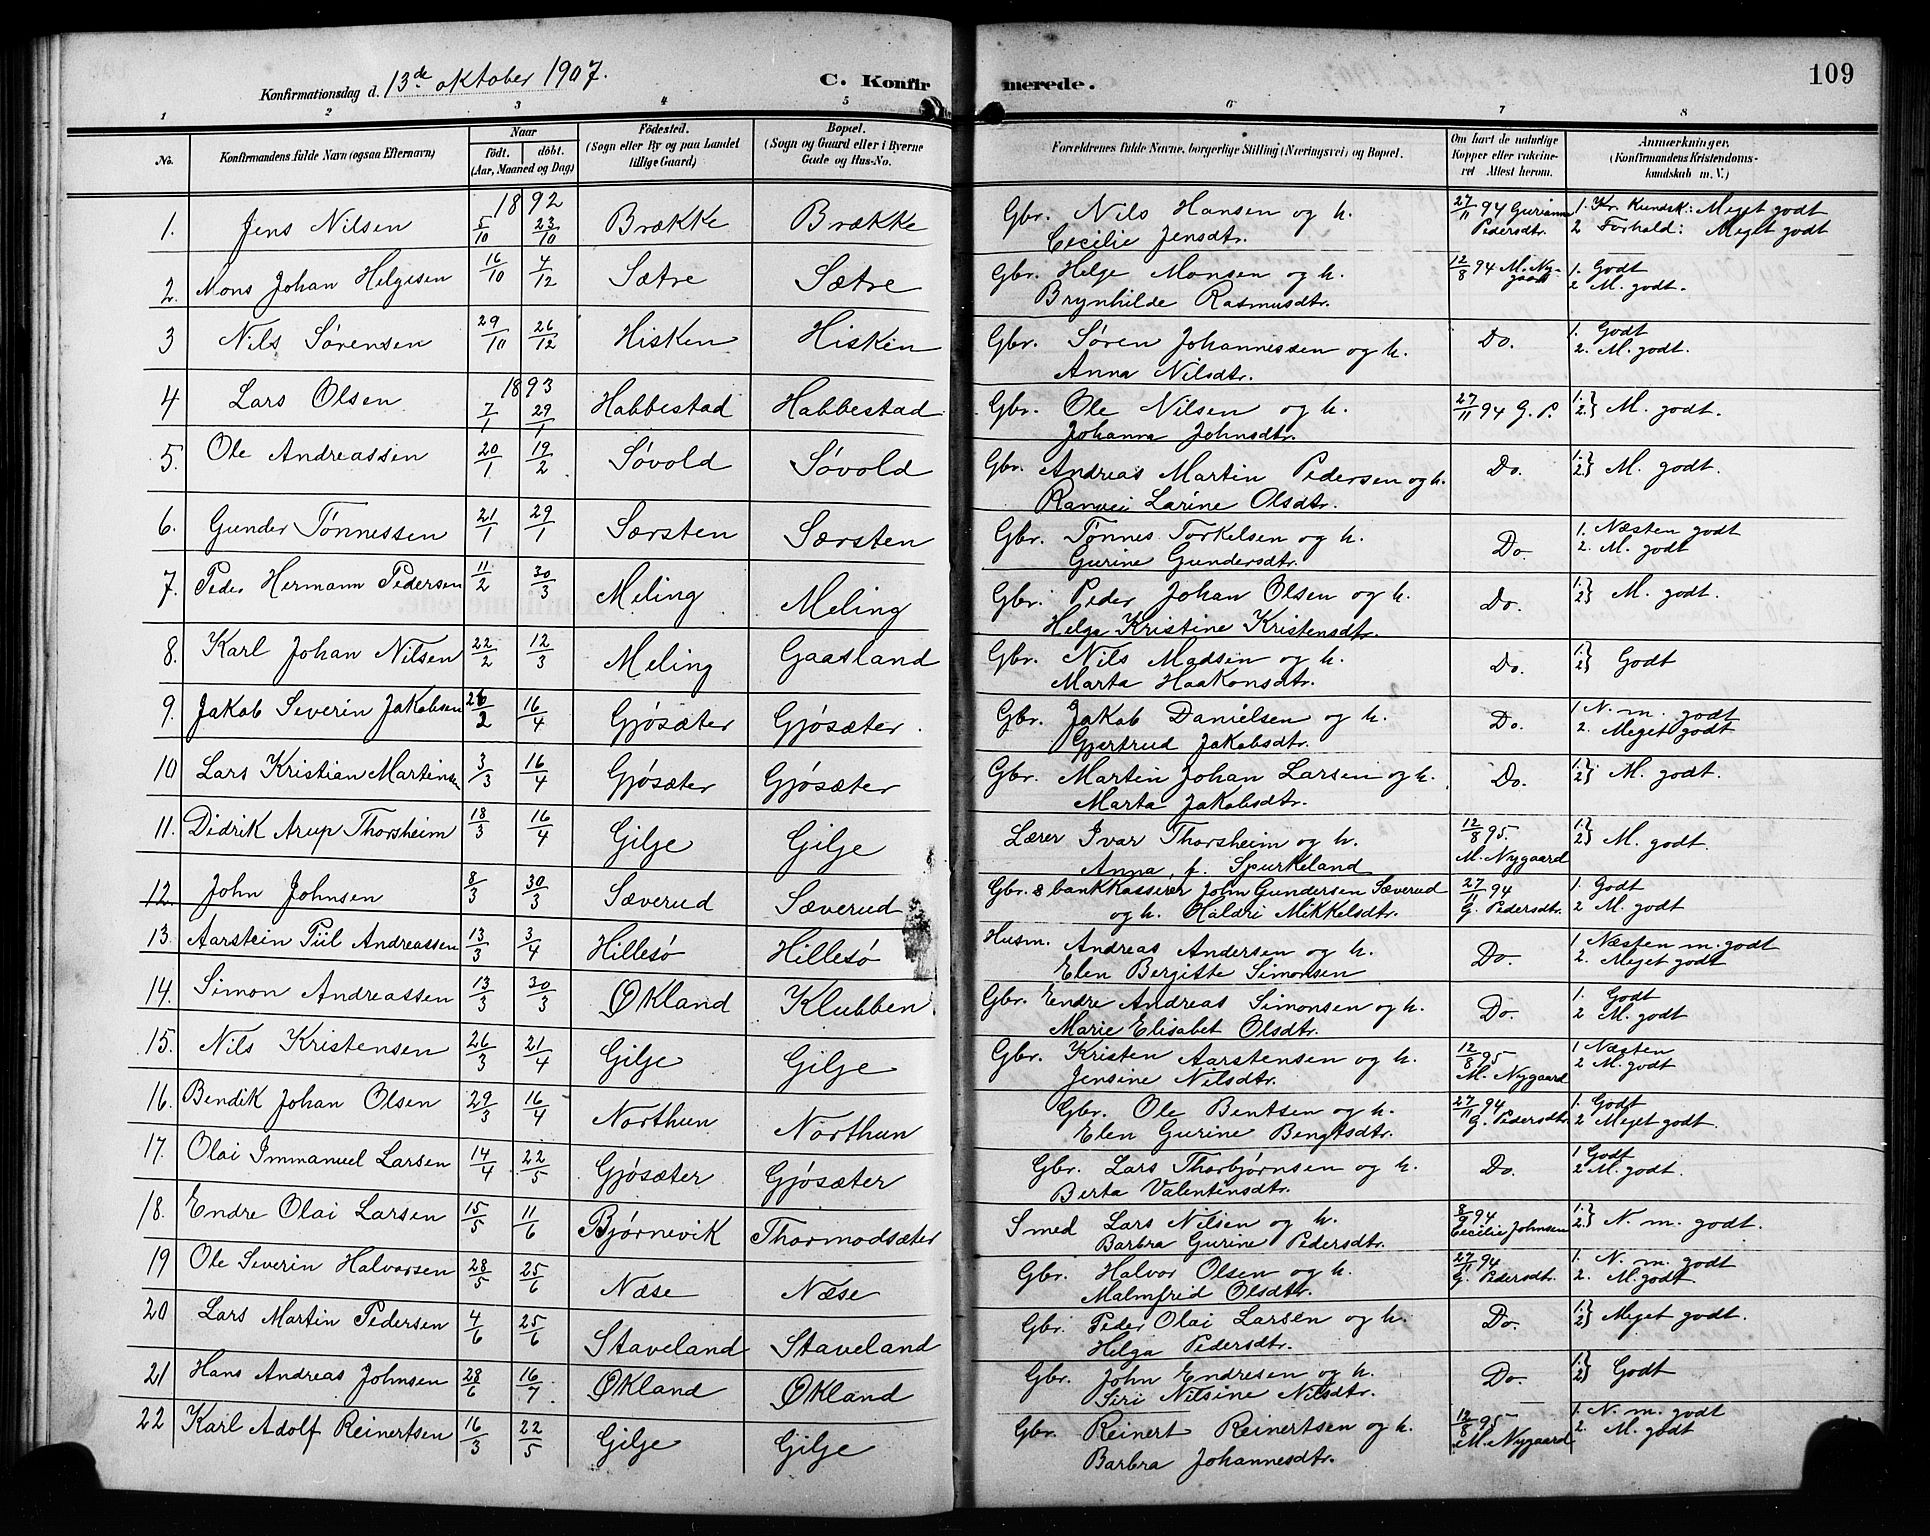 109
Konfirmationsdag d. 13de oktober 1907.
C. Konfirmerede.
1 2 3 4 5 6 7 8
No. Konfirmandens fulde Navn (ogsaa Efternavn) Naar født. døbt. (Aar, Maaned og Dag) Fødested. (Sogn eller By og paa Landet tillige Gaard) Bopæl. (Sogn og Gaard eller i Byerne Gade og Hus-No. Forældrenes fulde Navne, borgerlige Stilling (Næringsvei) og Bopæl. Om havt de naturlige Kopper eller vakcineret Attest herom. Anmærkninger. (Konfirmandens Kristendomskundskab m. V.)
1892
1. Jens Nilsen 5/10 23/10 Brække Brække Gbr. Nils Hansen og h. Cecilie Jensdtr. 27/11 94 Gurianne Pedersdtr. 1. Kr. Kundsk: Meget godt 2 Forhold: Meget godt
2. Mons Johan Helgesen 16/10 4/12 Sætre Sætre Gbr. Helje Monsen og h. Brynhilde Rasmusdtr. 12/8 94 M. Nygaard 1. Godt 2 M. godt.
3 Nils Sørensen 29/10 26/12 Hisken Hisken Gbr. Søren Johannessen og h. Anna Nilsdtr. Do. 1. Godt 2. M. godt.
1893
4 Lars Olsen 7/1 29/1 Habbestad Habbestad Gbr. Ole Nilsen og h. Johanna Johnsdtr. 27/11 94 G. P. 1. 2.} M. godt.
5. Ole Andreassen 20/1 19/2 Søvold Søvold Gbr. Andreas Martin Pedersen og h. Ranvei Larine Olsdtr. Do. 1. 2} M. godt.
6. Gunder Tønnessen 21/1 29/1 Særsten Særsten Gbr. Tønnes Torkelsen og h. Gurine Gundersdtr. Do. 1. Næsten godt 2. M. godt
7. Peder Hermann Pedersen 11/2 30/3 Meling Meling Gbr. Peder Johan Olsen og h. Helga Kristine Kristensdtr. Do. 1. 2} M. godt.
8. Karl Johan Nilsen 22/2 12/3 Meling Gaasland Gbr. Nils Madsen og h. Marta Haakonsdtr. Do. 1. 2} Godt
9. Jakob Severin Jakobsen 26/2 16/4 Gjøsæter Gjøsæter. Gbr. Jakob Danielsen og h. Gjertrud Jakobsdtr. Do. 1 N. m. godt 2. Meget godt
10 Lars Kristian Martinsen 3/3 16/4 Gjøsæter Gjøsæter Gbr. Martin Johan Larsen og h. Marta Jakobsdtr. Do. 1. 2} M. godt.
11. Didrik Arup Thorsheim 18/3 16/4 Gilje Gilje Lærer Ivar Thorsheim og h. Anna, f. Spurkeland 12/8 95. M. Nygaard 1. 2} M. godt.
12. John Johnsen 8/3 30/3 Sæverud Sæverud Gbr. & bankkasserer John Gundersen Sæverud og h. Haldri Mikkelsdtr. 27/11 94 G. Pedersdtr. 1. Godt 2 M. godt
13. Aarstein Piil Andreassen 13/3 3/4 Hillesø Hillesø Husm. Andreas Andersen og h. Elen Bergitte Simonsen Do. 1 Næsten m. godt 2. Meget godt
14. Simon Andreassen 13/3 30/3 Økland Klubben Gbr. Endre Andreas Simonsen og h. Marie Elisabet Olsdtr. Do. 1. Godt 2 M. godt
15. Nils Kristensen 26/3 21/4 Gilje Gilje Gbr. Kristen Aarstensen og h. Jensine Nilsdtr. 12/8 95 M. Nygaard 1 Næsten 2 M. godt
16. Bendik Johan Olsen 29/3 16/4 Northun Northun Gbr. Ole Bentsen og h. Elen Gurine Bengtsdtr. 27/11 94 G. Pedersdtr 1. Godt 2 Meget godt.
17. Olai Immanuel Larsen 14/4 22/5 Gjøsæter Gjøsæter Gbr. Lars Thorbjørnsen og h. Berta Valentinsdtr. Do. 1 Godt 2 M. godt.
18. Endre Olai Larsen 15/5 11/6 Bjørnevik Thormodsæter Smed Lars Nilsen og h. Barbra Gurine Pedersdtr. 8/9 94 Cecilie Johnsen 1. 2.} N. m. godt.
19 Ole Severin Halvorsen 28/5 25/6 Næse Næse Gbr. Halvor Olsen og h. Malmfrid Olsdtr. 27/11 94 G. Pedersdtr. 1. N. m. godt 2. M. godt
20 Lars Martin Pedersen 4/6 25/6 Staveland Staveland Gbr. Peder Olai Larsen og h. Helga Pedersdtr. Do. 1. 2} Meget godt.
21 Hans Andreas Johnsen 28/6 16/7. Økland Økland Gbr. John Endresen og h. Siri Nilsine Nilsdtr. Do. 1. 2} Godt
22 Karl Adolf Reinertsen 16/3 22/5 Gilje Gilje Gbr. Reinert Reinertsen og h. Barbra Johannesdtr. 12/8 95 M. Nygaard 1. N. m. godt 2. M. godt